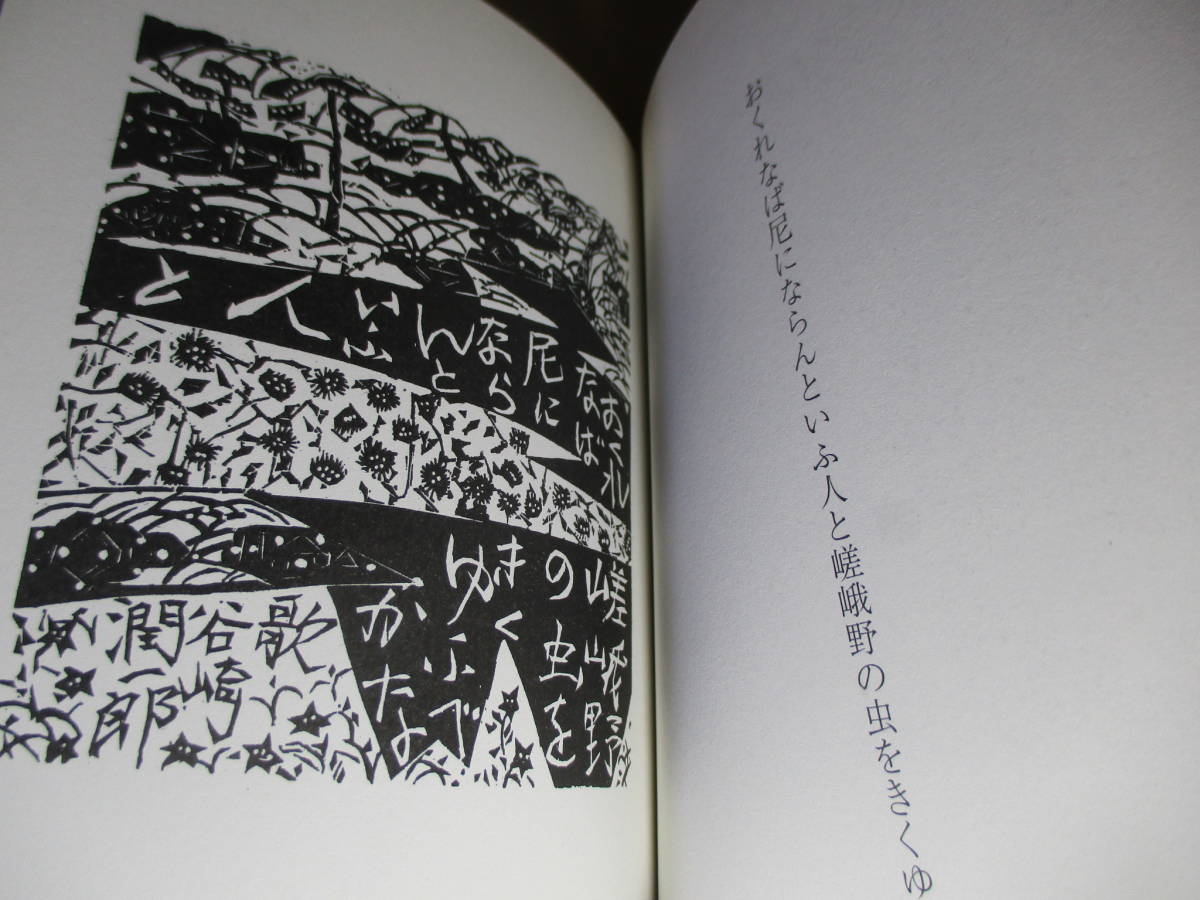 おくれなば尼にならんといふ人と嵯峨野の虫をきくゆ
おくれ
なば
尼に
なら
んと
いふ
人
と
嵯峨野
の虫を
きく
ゆふべ
かな
歌
谷崎
潤一郎